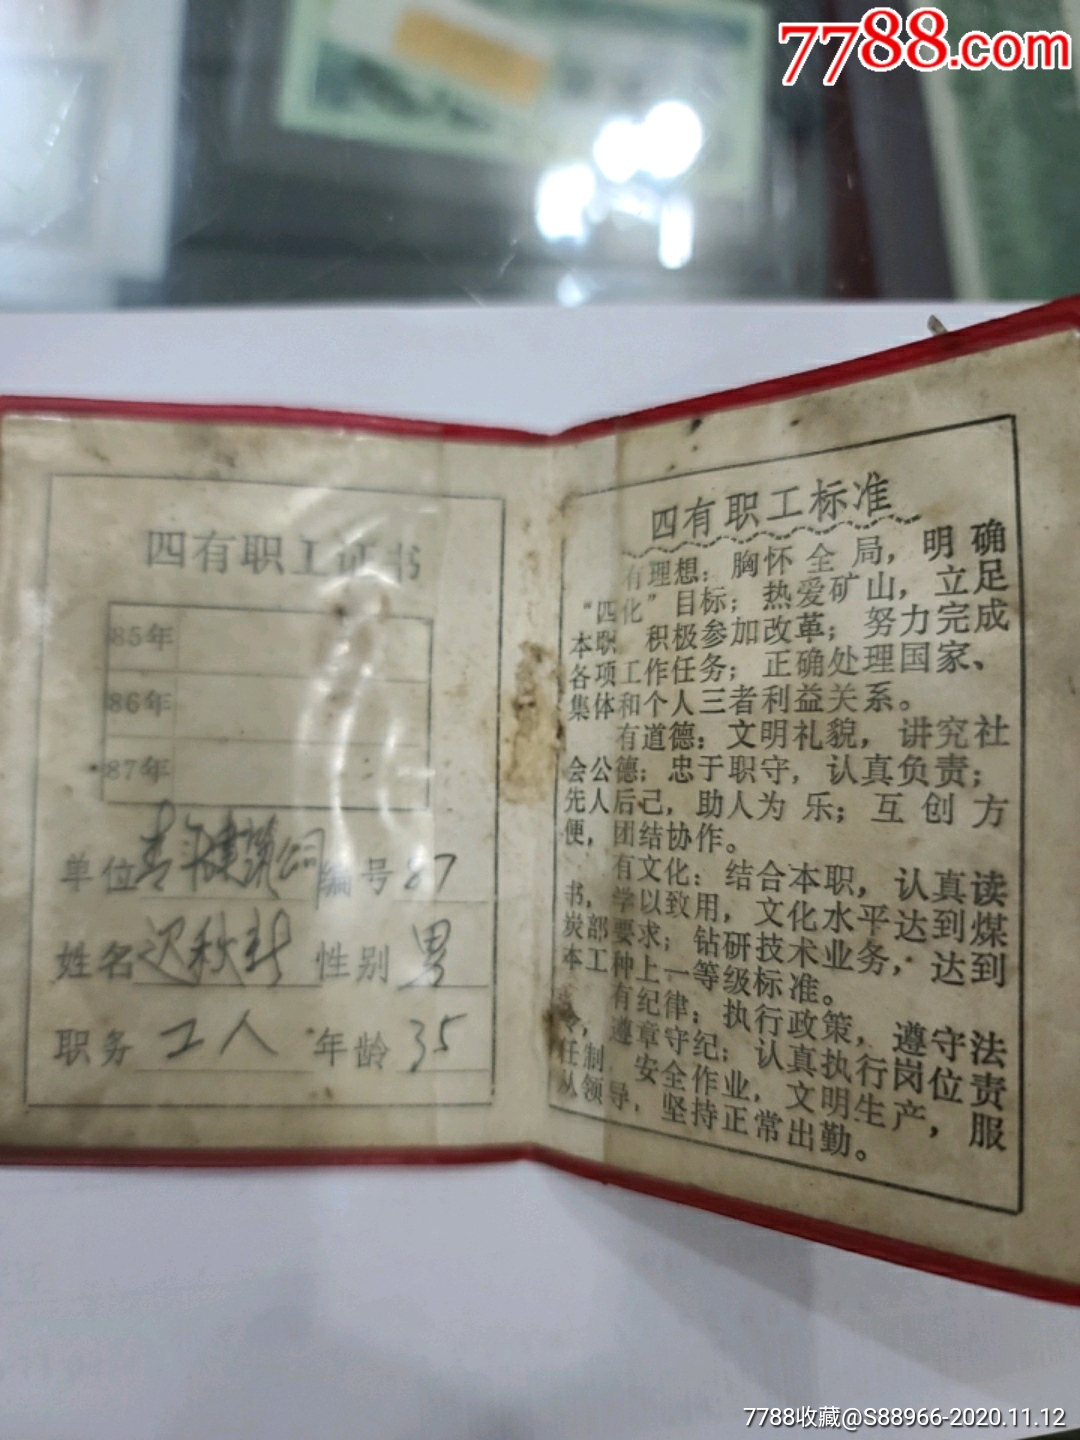 7788.com
四有职工证书
85年
86年
87年
单位青年建筑公司编号87
姓名迟秋 性别男
职务工人 年龄35
四有职工标准
有理想：胸怀全局，明确
“四化”目标；热爱矿山，立足
本职 积极参加改革；努力完成
各项工作任务；正确处理国家、
集体和个人三者利益关系。
有道德：文明礼貌，讲究社
会公德；忠于职守，认真负责；
先人后己，助人为乐；互创方
便，团结协作。
有文化：结合本职，认真读
书，学以致用，文化水平达到煤
炭部要求；钻研技术业务，达到
本工种上一等级标准。
有纪律：执行政策，遵守法
令，遵章守纪；认真执行岗位责
任制 安全作业，文明生产，服
从领导，坚持正常出勤。
7788收藏@S88966-2020.11.12